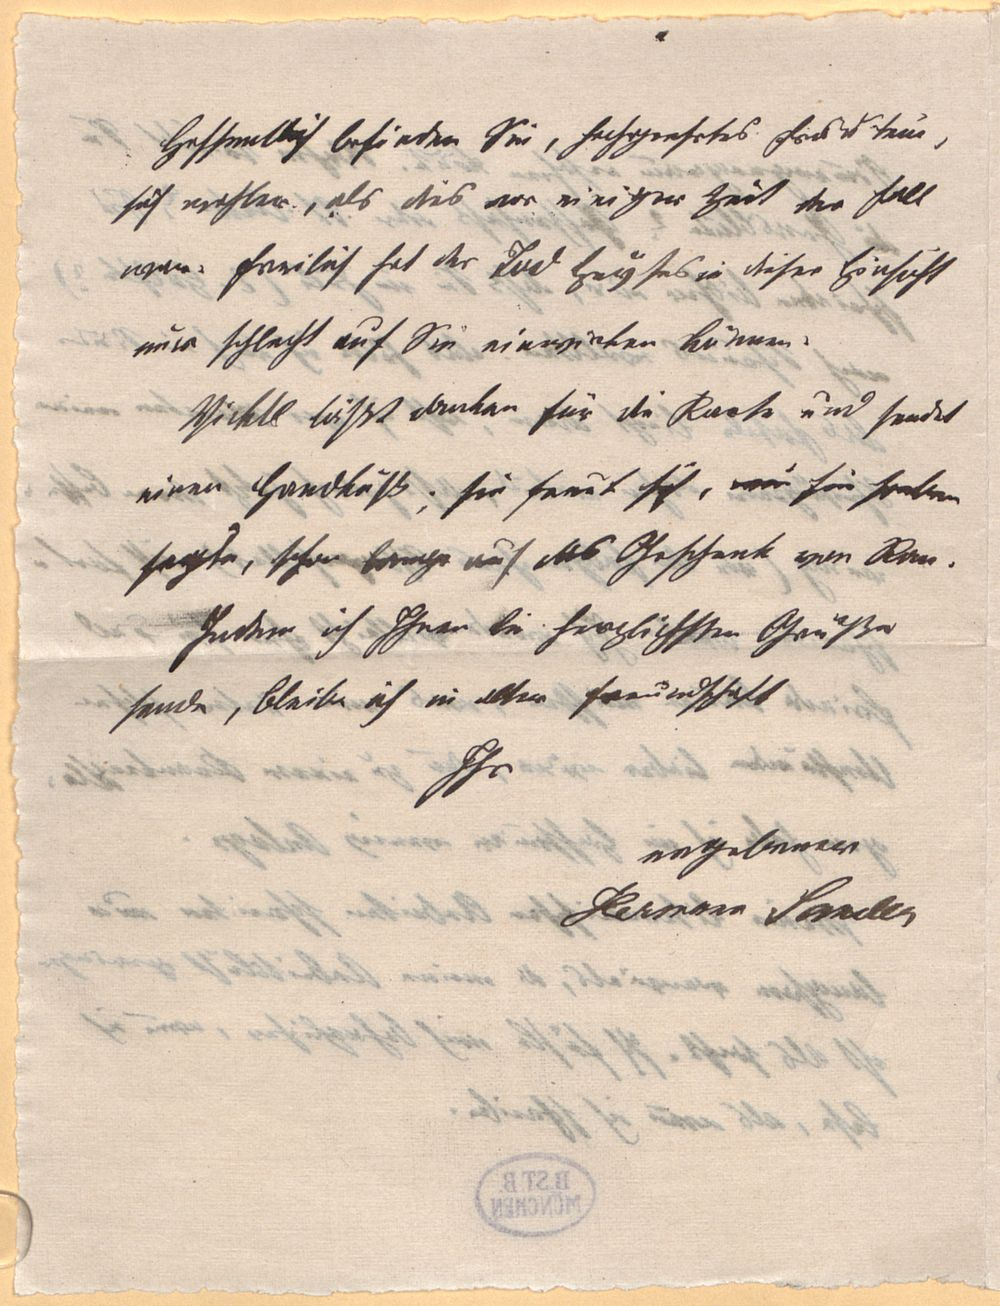 Hoffentlich befinden Sie, hochgeehrtes Fräulein,
sich wohler, als dies vor einiger Zeit der Fall
war. Freilich hat der Tod Heyses in dieser Hinsicht
nur schlecht auf Sie einwirken können.
läßt danken für die Karte und sendet
einen Handkuß; sie freut sich, wie Sie
sagte, schon lange auf das Geschenk von
Indem ich Ihnen die herzlichsten Grüße
sende, bleibe ich in alter Freundschaft
Ihr
ergebener
Hermann
B.ST.B.
MÜNCHEN